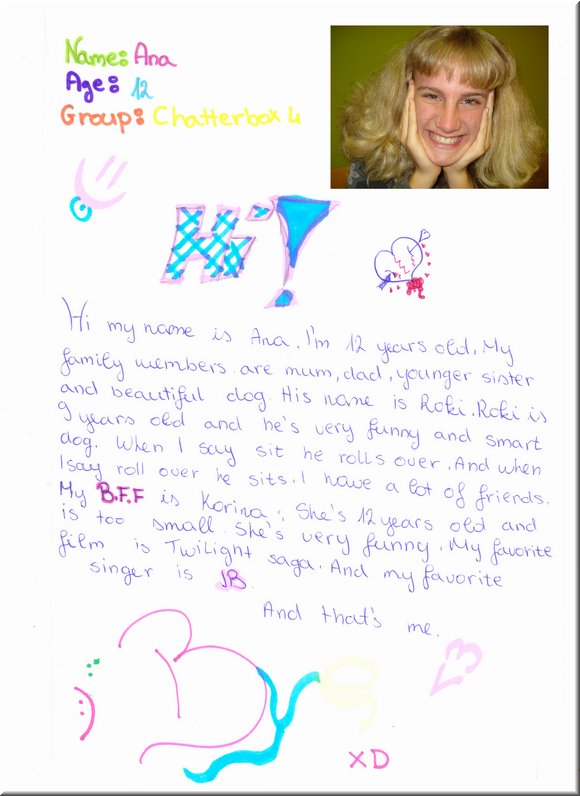 Name: Ana
Age: 12
Group: Chatterbox 4
Hi!
B
Hi my name is Ana. I'm 12 years old. My
family members are mum, dad, younger sister
and beautiful dog. His name is Roki. Roki is
9 years old and he's very funny and smart
dog. When I say sit he rolls over. And when
I say roll over he sits. I have a lot of friends.
My B.F.F is Korina. She's 12 years old and
is too small. She's very funny. My favorite
film is Twilight saga. And my favorite
singer is JB.
And that's me.
<3
By
:)
XD